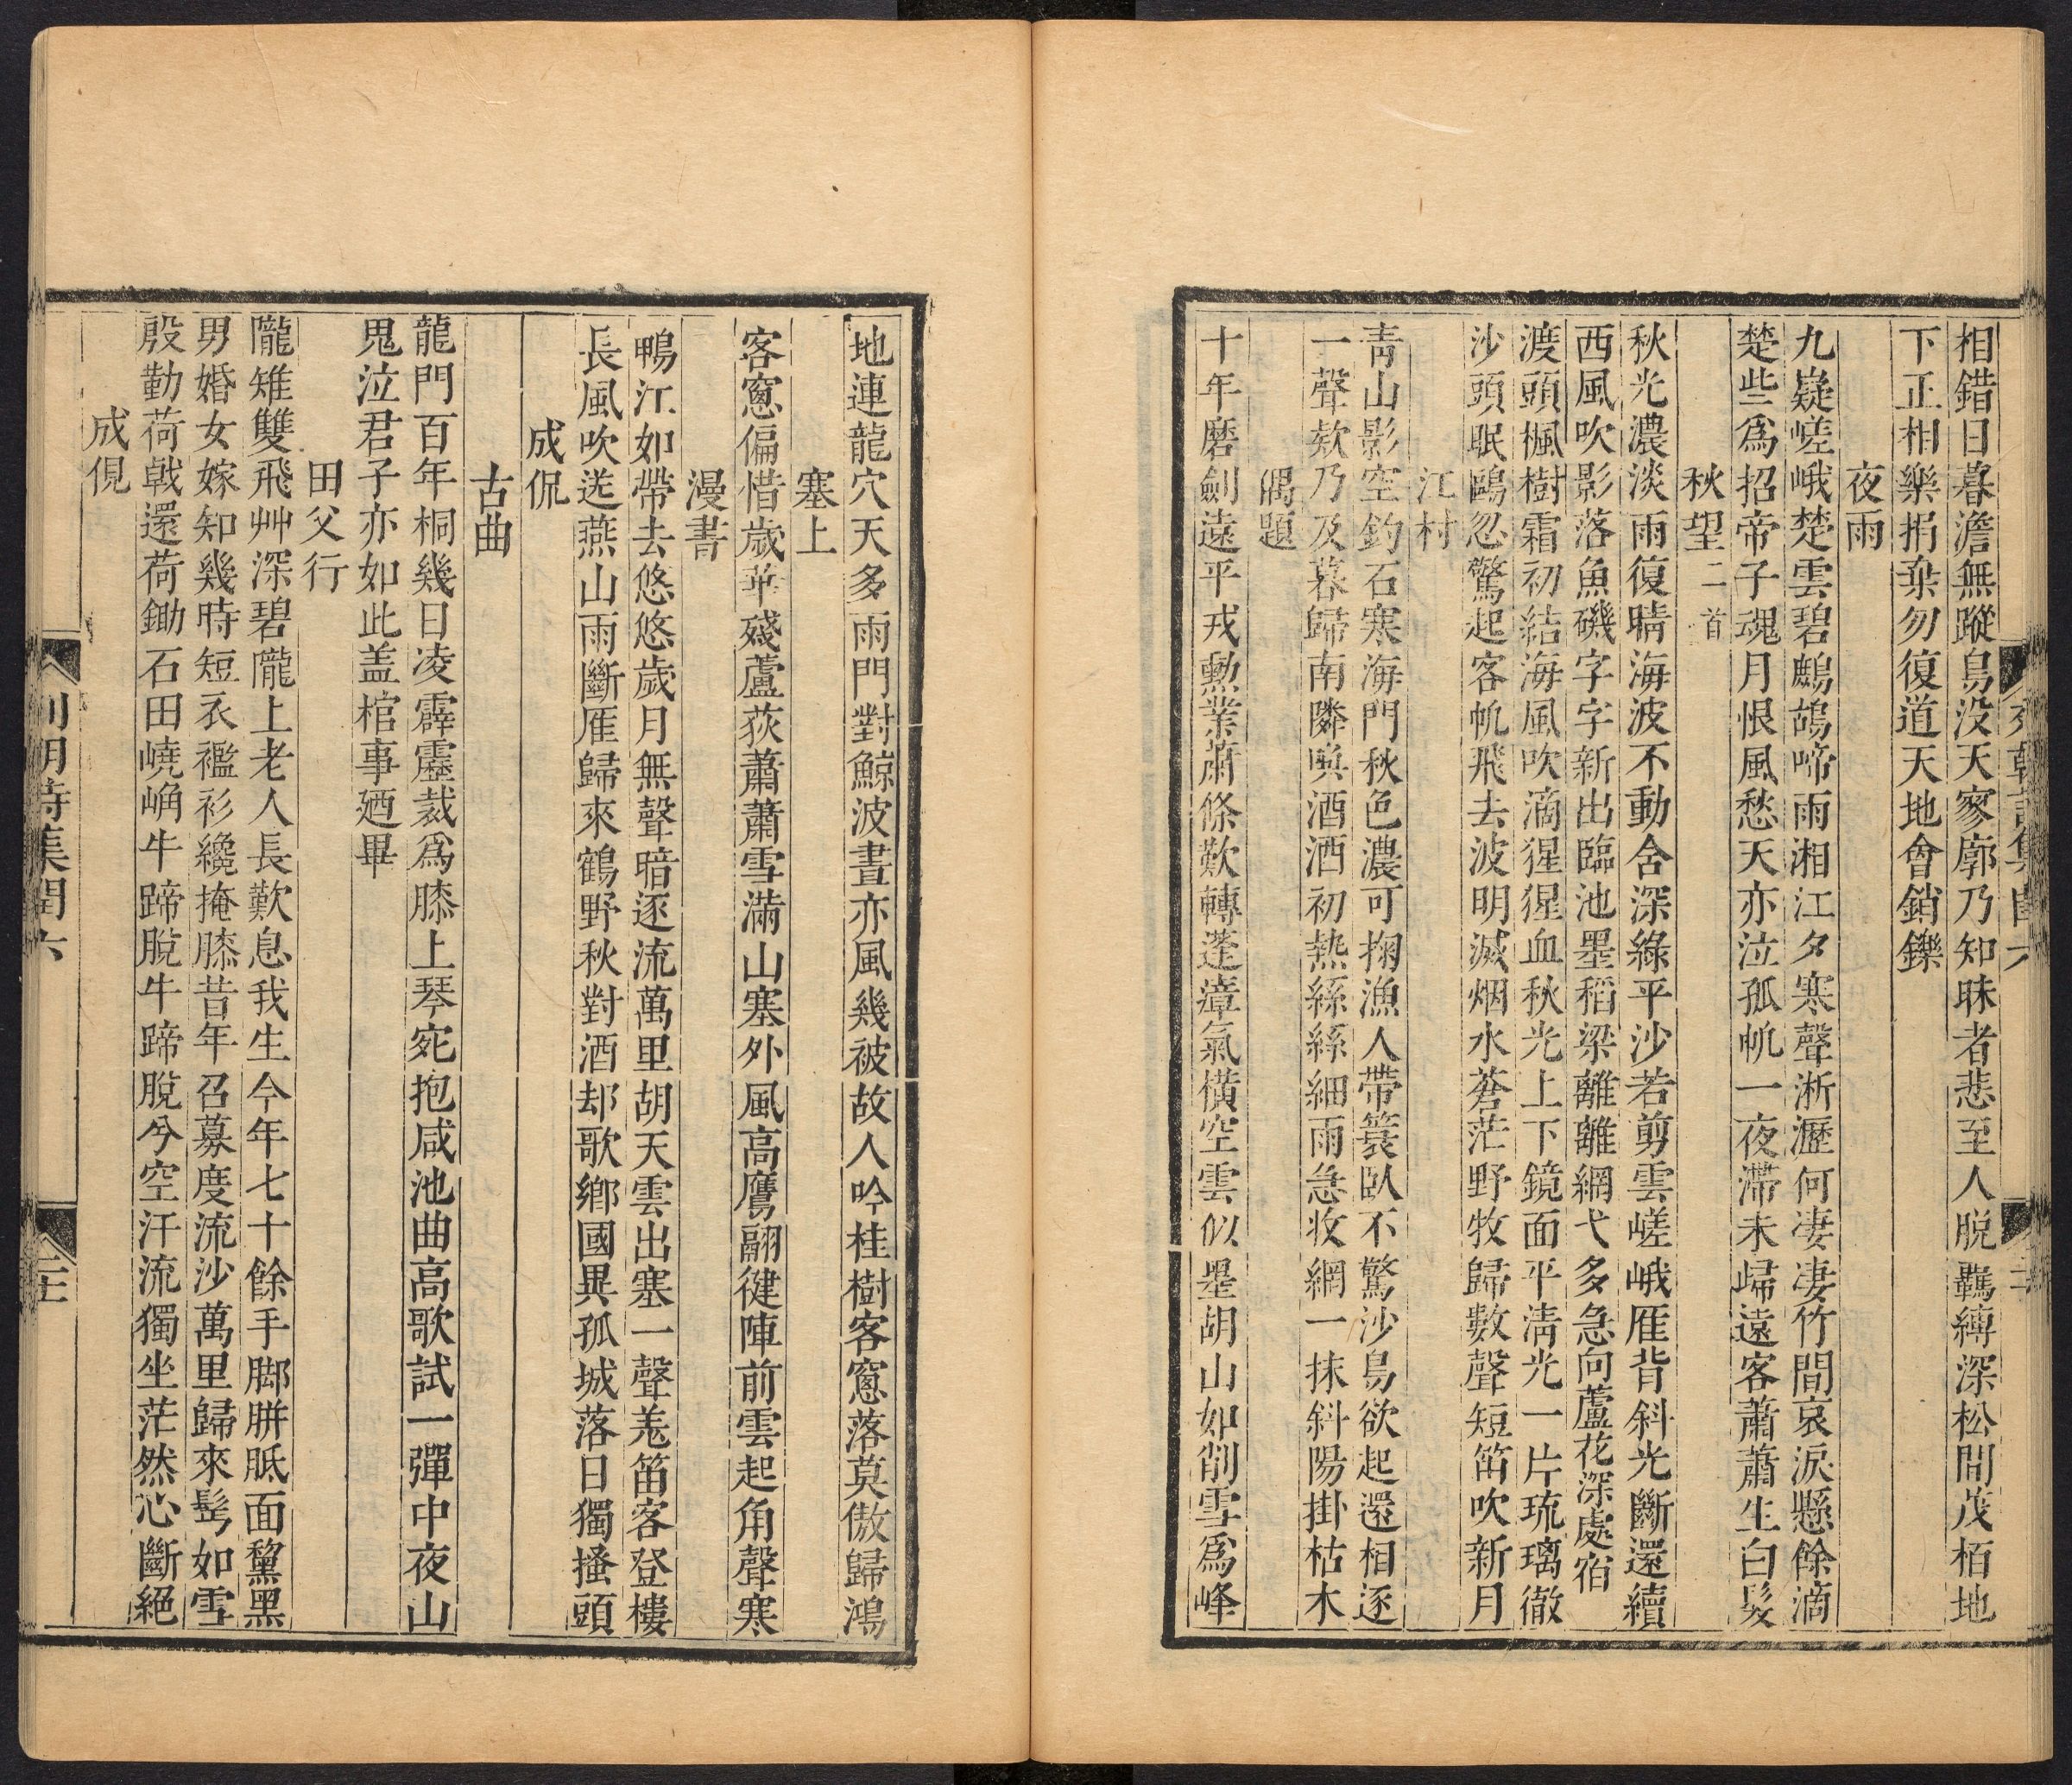 相錯日暮澹無蹤鳥没天寥廓乃知昧者悲至人脱羈縛深松間茂栢地
下正相樂捐棄勿復道天地會銷鑠
夜雨
九嶷嵯峨楚雲碧鷓鴣啼雨湘江夕寒聲淅瀝何凄凄竹間哀淚懸餘滴
楚些爲招帝子魂月恨風愁天亦泣孤帆一夜滯未歸遠客蕭蕭生白髪
秋望二首
秋光濃淡雨復晴海波不動含深綠平沙若剪雲嵯峨雁背斜光斷還續
西風吹影落魚磯字字新出臨池墨稻梁離離網弋多急向蘆花深處宿
渡頭楓樹霜初結海風吹滴猩猩血秋光上下鏡面平淸光一片琉璃徹
沙頭眠鷗忽驚起客帆飛去波明滅烟水蒼茫野牧歸數聲短笛吹新月
江村
靑山影空釣石寒海門秋色濃可掬漁人帶簑臥不驚沙鳥欲起還相逐
一聲欸乃及暮歸南隣喚酒酒初熱絲絲細雨急收網一抹斜陽掛枯木
偶題
十年磨劍遠平戎勲業蕭條歎轉蓬瘴氣橫空雲似墨胡山如削雪爲峰
地連龍穴天多雨門對鯨波晝亦風幾被故人吟桂樹客窻落莫傲歸鴻
塞上
客窻偏惜歲華殘蘆荻蕭蕭雪滿山塞外風高鷹翮健陣前雲起角聲寒
漫書
鴨江如帶去悠悠歲月無聲暗逐流萬里胡天雲出塞一聲羗笛客登樓
長風吹送燕山雨斷雁歸來鶴野秋對酒却歌鄉國異孤城落日獨搔頭
成侃
古曲
龍門百年桐幾日凌霹靂裁爲膝上琴宛抱咸池曲高歌試一彈中夜山
鬼泣君子亦如此盖棺事廼畢
田父行
隴雉雙飛艸深碧隴上老人長歎息我生今年七十餘手脚胼胝面黧黑
男婚女嫁知幾時短衣襤衫纔掩膝昔年召募度流沙萬里歸來髩如雪
殷勤荷戟還荷鋤石田嶢崅牛蹄脱牛蹄脱兮空汗流獨坐茫然心斷絕
成俔
列朝詩集閏六